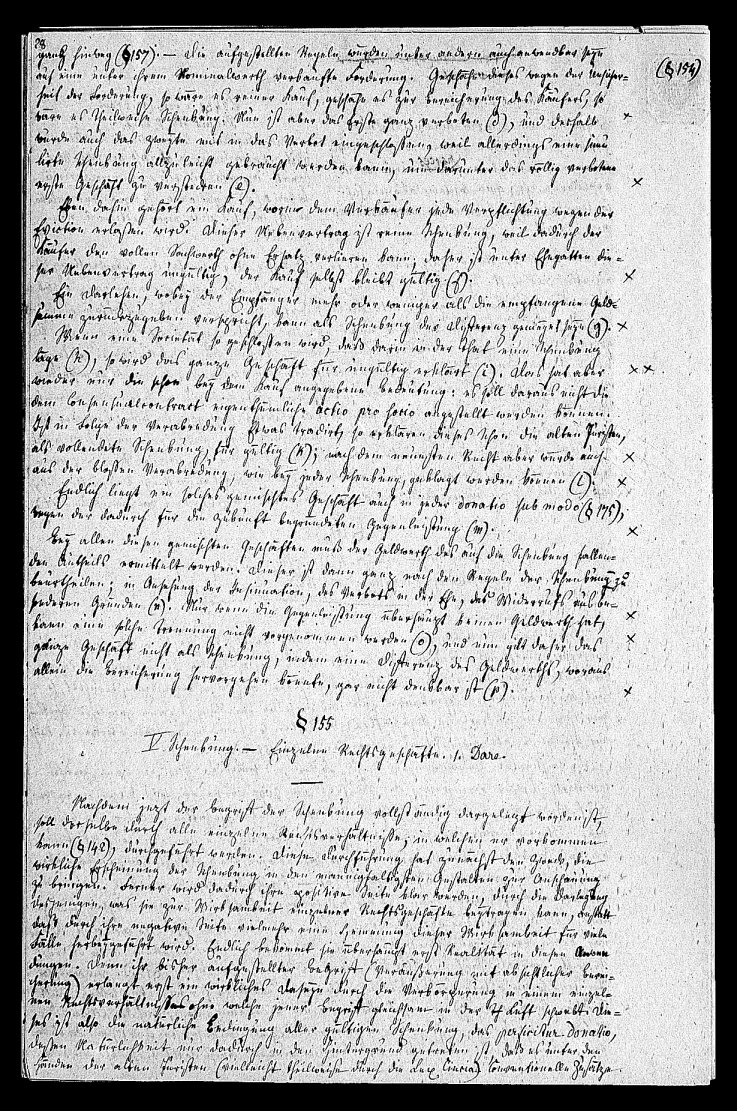 28
ganz hinweg (§157). — Die aufgestellten Regeln würden unter andern auch anwendbar seyn
(§ 154)
auf eine unter ihrem Nominalwerth verkaufte Forderung. Geschähe dieses wegen der Unsicher-
heit der Forderung, so wäre es reiner Kauf, geschähe es zur Bereicherung des Käufers, so
wäre es theilweise Schenkung. Nun ist aber das Erste ganz verboten (d), und deshalb
wurde auch das zweyte mit in das Verbot eingeschlossen, weil allerdings eine simu
lirte Schenkung allzuleicht gebraucht werden kann, um darunter das völlig verbotene
erste Geschäft zu verstecken (e).
Eben dahin gehört ein Kauf, worin dem Verkäufer jede Verpflichtung wegen der
Eviction erlassen wird. Dieser Nebenvertrag ist reine Schenkung, weil dadurch der
Käufer den vollen Sachwerth ohne Ersatz verlieren kann, daher ist unter Ehegatten die-
ser Nebenvertrag ungültig, der Kauf selbst bleibt gültig (f).
Ein Darlehen, wobey der Empfänger mehr oder weniger als die empfangene Geld-
summe zurückzugeben verspricht, kann als Schenkung der Differenz gemeynt seyn (g).
Wenn eine Societät so geschlossen wird, daß darin in der That eine Schenkung
liege (h), so wird das ganze Geschäft für ungültig erklärt (i). Das hat aber
wieder nur die schon bey dem Kauf angegebene Bedeutung: es soll daraus nicht die
dem Consensualcontract eigenthümliche actio pro socio angestellt werden können.
Ist in Folge der Verabredung Etwas tradirt, so erklären dieses schon die alten Juristen,
als vollendete Schenkung, für gültig (k); nach dem neuesten Recht aber würde auch
aus der bloßen Verabredung, wie bey jeder Schenkung, geklagt werden können (l).
Endlich liegt ein solches gemischtes Geschäft auch in jeder donatio sub modo (§ 175),
wegen der dadurch für die Zukunft begründeten Gegenleistung (m).
Bey allen diesen gemischten Geschäften muß der Geldwerth des auf die Schenkung fallen-
den Antheils ermittelt werden. Dieser ist dann ganz nach den Regeln der Schenkung zu
beurtheilen; in Ansehung der Insinuation, des Verbots in der Ehe, des Widerrufs aus be-
sonderen Gründen (n). Nur wenn die Gegenleistung überhaupt keinen Geldwerth hat,
kann eine solche Trennung nicht vorgenommen werden (o), und nun gilt daher das
ganze Geschäft nicht als Schenkung, indem eine Differenz des Geldwerths, woraus
allein die Bereicherung hervorgehen könnte, gar nicht denkbar ist (p).
§ 155
IV Schenkung. — Einzelne Rechtsgeschäfte. 1. Dare.
Nachdem jetzt der Begriff der Schenkung vollständig dargelegt worden ist,
soll derselbe durch alle einzelne Rechtsverhältnisse, in welchen er vorkommen
kann (§ 142), durchgeführt werden. Diese Durchführung hat zunächst den Zweck, die
wirkliche Erscheinung der Schenkung in den mannigfaltigsten Gestalten zur Anschauung
zu bringen. Ferner wird dadurch ihre positive Seite klar werden, durch die Darlegung
desjenigen, was sie zur Wirksamkeit einzelner Rechtsgeschäfte beytragen kann, anstatt
daß durch ihre negative Seite vielmehr eine Hemmung dieser Wirksamkeit für viele
Fälle herbeygeführt wird. Endlich bekommt sie überhaupt erst Realität in diesen Anwen
dungen. Denn ihr bisher aufgestellter Begriff (Veräußerung mit absichtlicher Berei-
cherung) erlangt erst ein wirkliches Daseyn durch die Verkörperung in einem einzel-
nen Rechtsverhältniß, ohne welche jener Begriff gleichsam in der Luft schwebt. Die-
ses ist also die natürliche Bedingung aller gültigen Schenkung, das perficitur donatio,
dessen Natürlichkeit nur dadurch in den Hintergrund getreten ist, daß es unter den
Händen der alten Juristen (vielleicht theilweise durch die Lex Cincia) conventionelle Zusätze